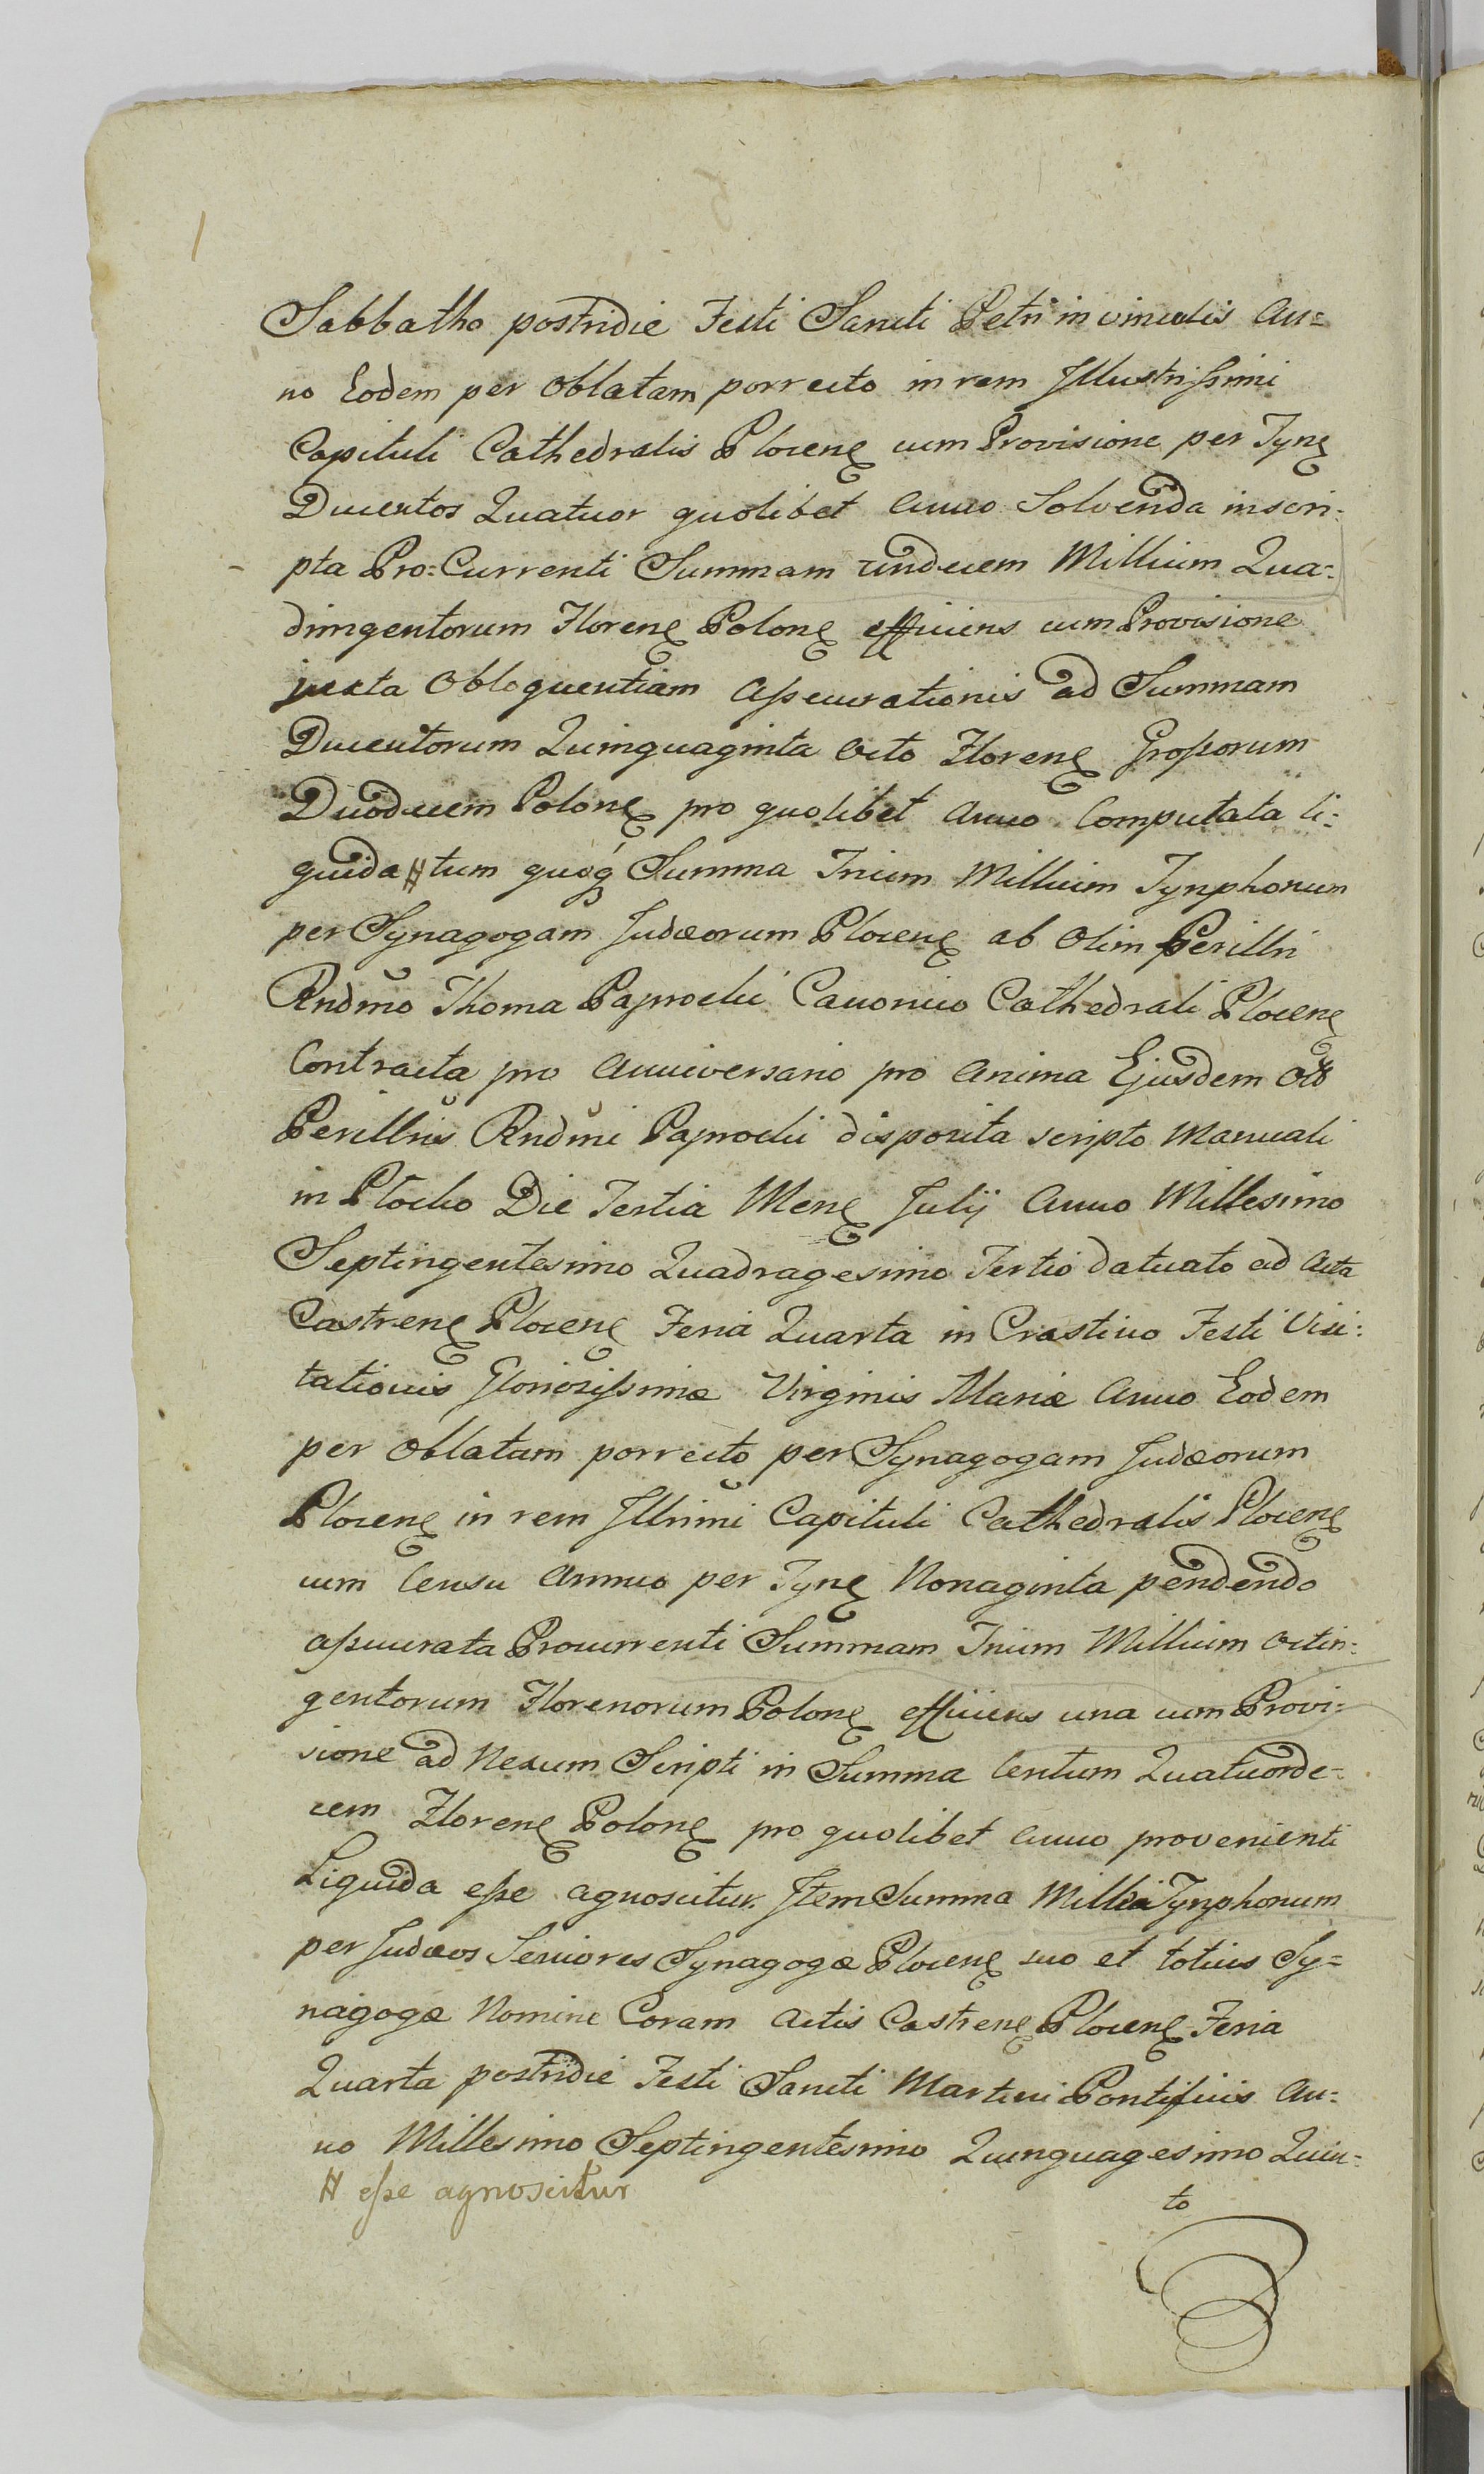 Sabbatho postridie Festi Sancti Petri in vinculis An=
no Eodem per Oblatam porrecto in rem Illustrissimi
Capituli Cathedralis Plocen̄ cum Provisione per Tyn̄
Ducentos Quatuor quolibet Anno Solvenda inscri:
pta Pro:Currenti Summam undecem Millium Qua:
dringentorum Floren̄ Polon̄ efficiens cum Provisione
juxta Obloquentiam Assecurationis ad Summam
Ducentorum Quinquaginta Octo Floren̄ Grossorum
Duodecem Polon̄ pro quolibet Anno Computata li:
quida # tum quoq́ Summa Trium Millium Tynphonum
per Synagogam Judæorum Plocen̄ ab Olim Perillri
Rndmo Thoma Paprocki Canonico Cathedrali Plocen̄
Contracta pro Anniversario pro Anima Ejusdem
Perillris Rndmi Paprocki disposita scripto Manuali
in Płocko Die Tertia Men̄ Julij Anno Millesimo
Septingentesimo Quadragesimo Tertio datuato ad Acta
Castren̄ Plocen̄ Feria Quarta in Crastino Festi Visi:
tationis Gloriosissimæ Virginis Mariæ Anno Eodem
per Oblatam porrecto per Synagogam Judæorum
Plocen̄ in rem Illrimi Capituli Cathedralis Plocen̄
cum Censu Annuo per Tyn̄ Nonaginta pendendo
assecurata Procurrenti Summam Trium Millium Octin:
gentorum Florenorum Polon̄ efficiens una cum Provi:
sione ad Nexum Scripti in Summa Centum Quatuorde:
cem Floren̄ Polon̄ pro quolibet Anno provenienti
Liquida esse agnoscitur. Item Summa Millia Tynphonum
per Judæos Seniores Synagogæ Plocen̄ suo et totius Sy=
nagogæ Nomine Coram Actis Castren̄ Plocen̄ Feria
Quarta postridie Festi Sancti Martini Pontificis An:
no Millesimo Septingentesimo Quinquagesimo Quin:
# esse agnoscitur
to